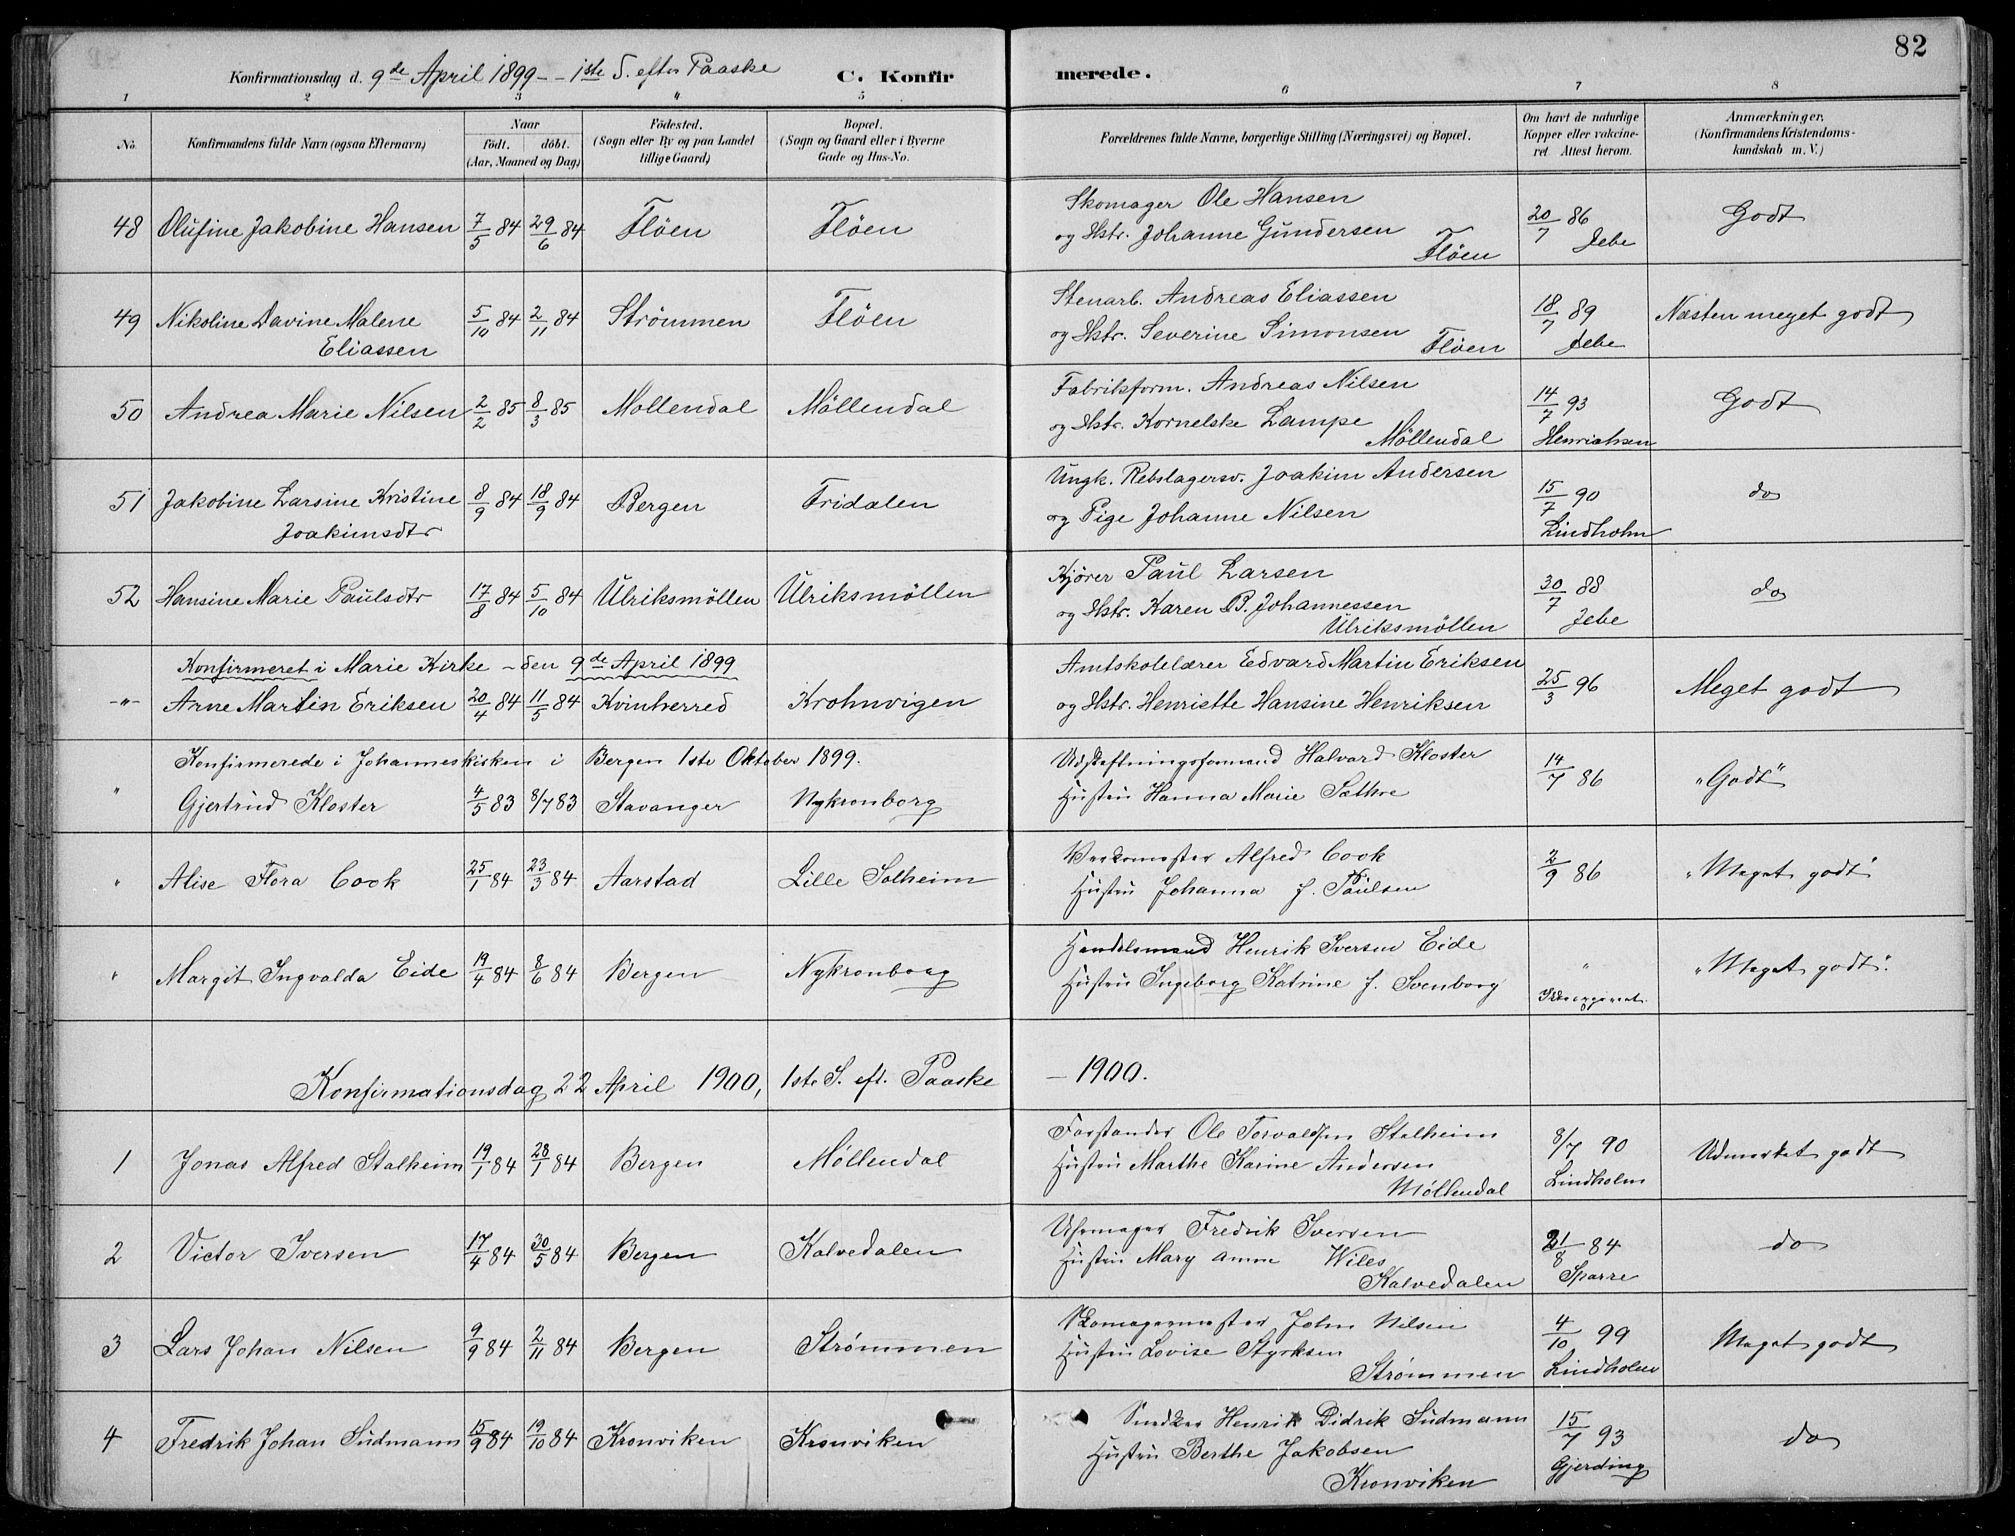 82
Konfirmationsdag d. 9de April 1899 - - 1ste S. efter Paaske C. Konfir merede.
1 2 3 4 5 6 7 8
No. Konfirmandens fulde Navn (ogsaa Efternavn) Naar født. døbt. (Aar, Maaned og Dag) Fødested. (Sogn eller By og paa Landet tillige Gaard) Bopæl. (Sogn og Gaard eller i Byerne Gade og Hus-No. Forældrenes fulde Navne, borgerlige Stilling (Næringsvei) og Bopæl. Om havt de naturlige Kopper eller vakcineret. Attest herom. Anmærkninger. (Konfirmandens Kristendomskundskab m. V.)
48 Olufine Jakobine Hansen 7/5 84 29/6 84 Fløen Fløen Skomager Ole Hansen 20/7 86 Godt
og Hstr. Johanne Gundersen Fløen Jebe
49 Nikoline Davine Malene 5/10 84 2/11 84 Strømmen Fløen Stenarb. Andreas Eliassen 18/7 89 Næsten meget godt
Eliassen og Hstr. Severine Simonsen Fløen Jebe
50 Andrea Marie Nilsen 2/2 85 8/3 85 Møllendal Møllendal Fabrikform. Andreas Nilsen 14/7 93 Godt
og Hstr. Kornelske Lampe Møllendal Henrichsen
51 Jakobine Larsine Kristine 8/9 84 18/9 84 Bergen Fridalen Ungk. Rebslagersv. Joakim Andersen 15/7 90 do
Joakimsdtr og Pige Johanne Nilsen Lindholm
52 Hansine Marie Paulsdtr 17/8 84 5/10 84 Ulriksmøllen Ulriksmøllen Kjører Paul Larsen 30/7 88 do
og Hstr. Karen B. Johannessen Ulriksmøllen Jebe
Konfirmeret i Marie Kirke - den 9de April 1899 Amtskolelærer Edvard Martin Eriksen
-"- Arne Martin Eriksen 20/4 84 11/5 84 Kvinherred Krohnvigen og Hstr. Henriette Hansine Henriksen 25/3 96 Meget godt
Konfirmerede i Johanneskirken i Bergen 1ste Oktober 1899. Halvard Kloster 14/7 86 "Godt"
" Gjertrud Kloster 4/5 83 8/7 83 Stavanger Nykronborg Hustru Hanna Marie Sæthre
" Alise Flora Cook 25/1 84 23/3 84 Aarstad Lille Solheim Værkmester Alfred Cook 2/9 86 "Meget godt"
Hustru Johanna f. Paulsen
" Margit Ingvalda Eide 19/4 84 8/6 84 Bergen Nykronborg Handelsmand Henrik Iversen Eide " "Meget godt".
Hustru Ingeborg Katrine f. Svenborg
Konfirmationsdag 22 April 1900, 1ste S. eft. Paaske - 1900.
1 Jonas Alfred Stalheim 19/1 84 28/1 84 Bergen Møllendal Forstander Ole Torvaldsen Stalheim 8/7 90 Udmerket godt
Hustru Marthe Karine Andersen Møllendal Lindholm
2 Victor Iversen 17/4 84 30/5 84 Bergen Kalvedalen Uhrmager Fredrik Iversen 21/8 84 do
Hustru Mary Anne Wiles Kalvedalen Sparre
3 Lars Johan Nilsen 9/9 84 2/11 84 Bergen Strømmen Skomagermester John Nilsen 4/10 99 Meget godt
Hustru Lovise Styrksen Strømmen Lindholm
4 Fredrik Johan Südmann 15/9 84 19/10 84 Kronviken Kronviken Snedker Henrik Didrik Südmann 15/7 93 do
Hustru Berthe Jakobsen Kronviken Gjerding